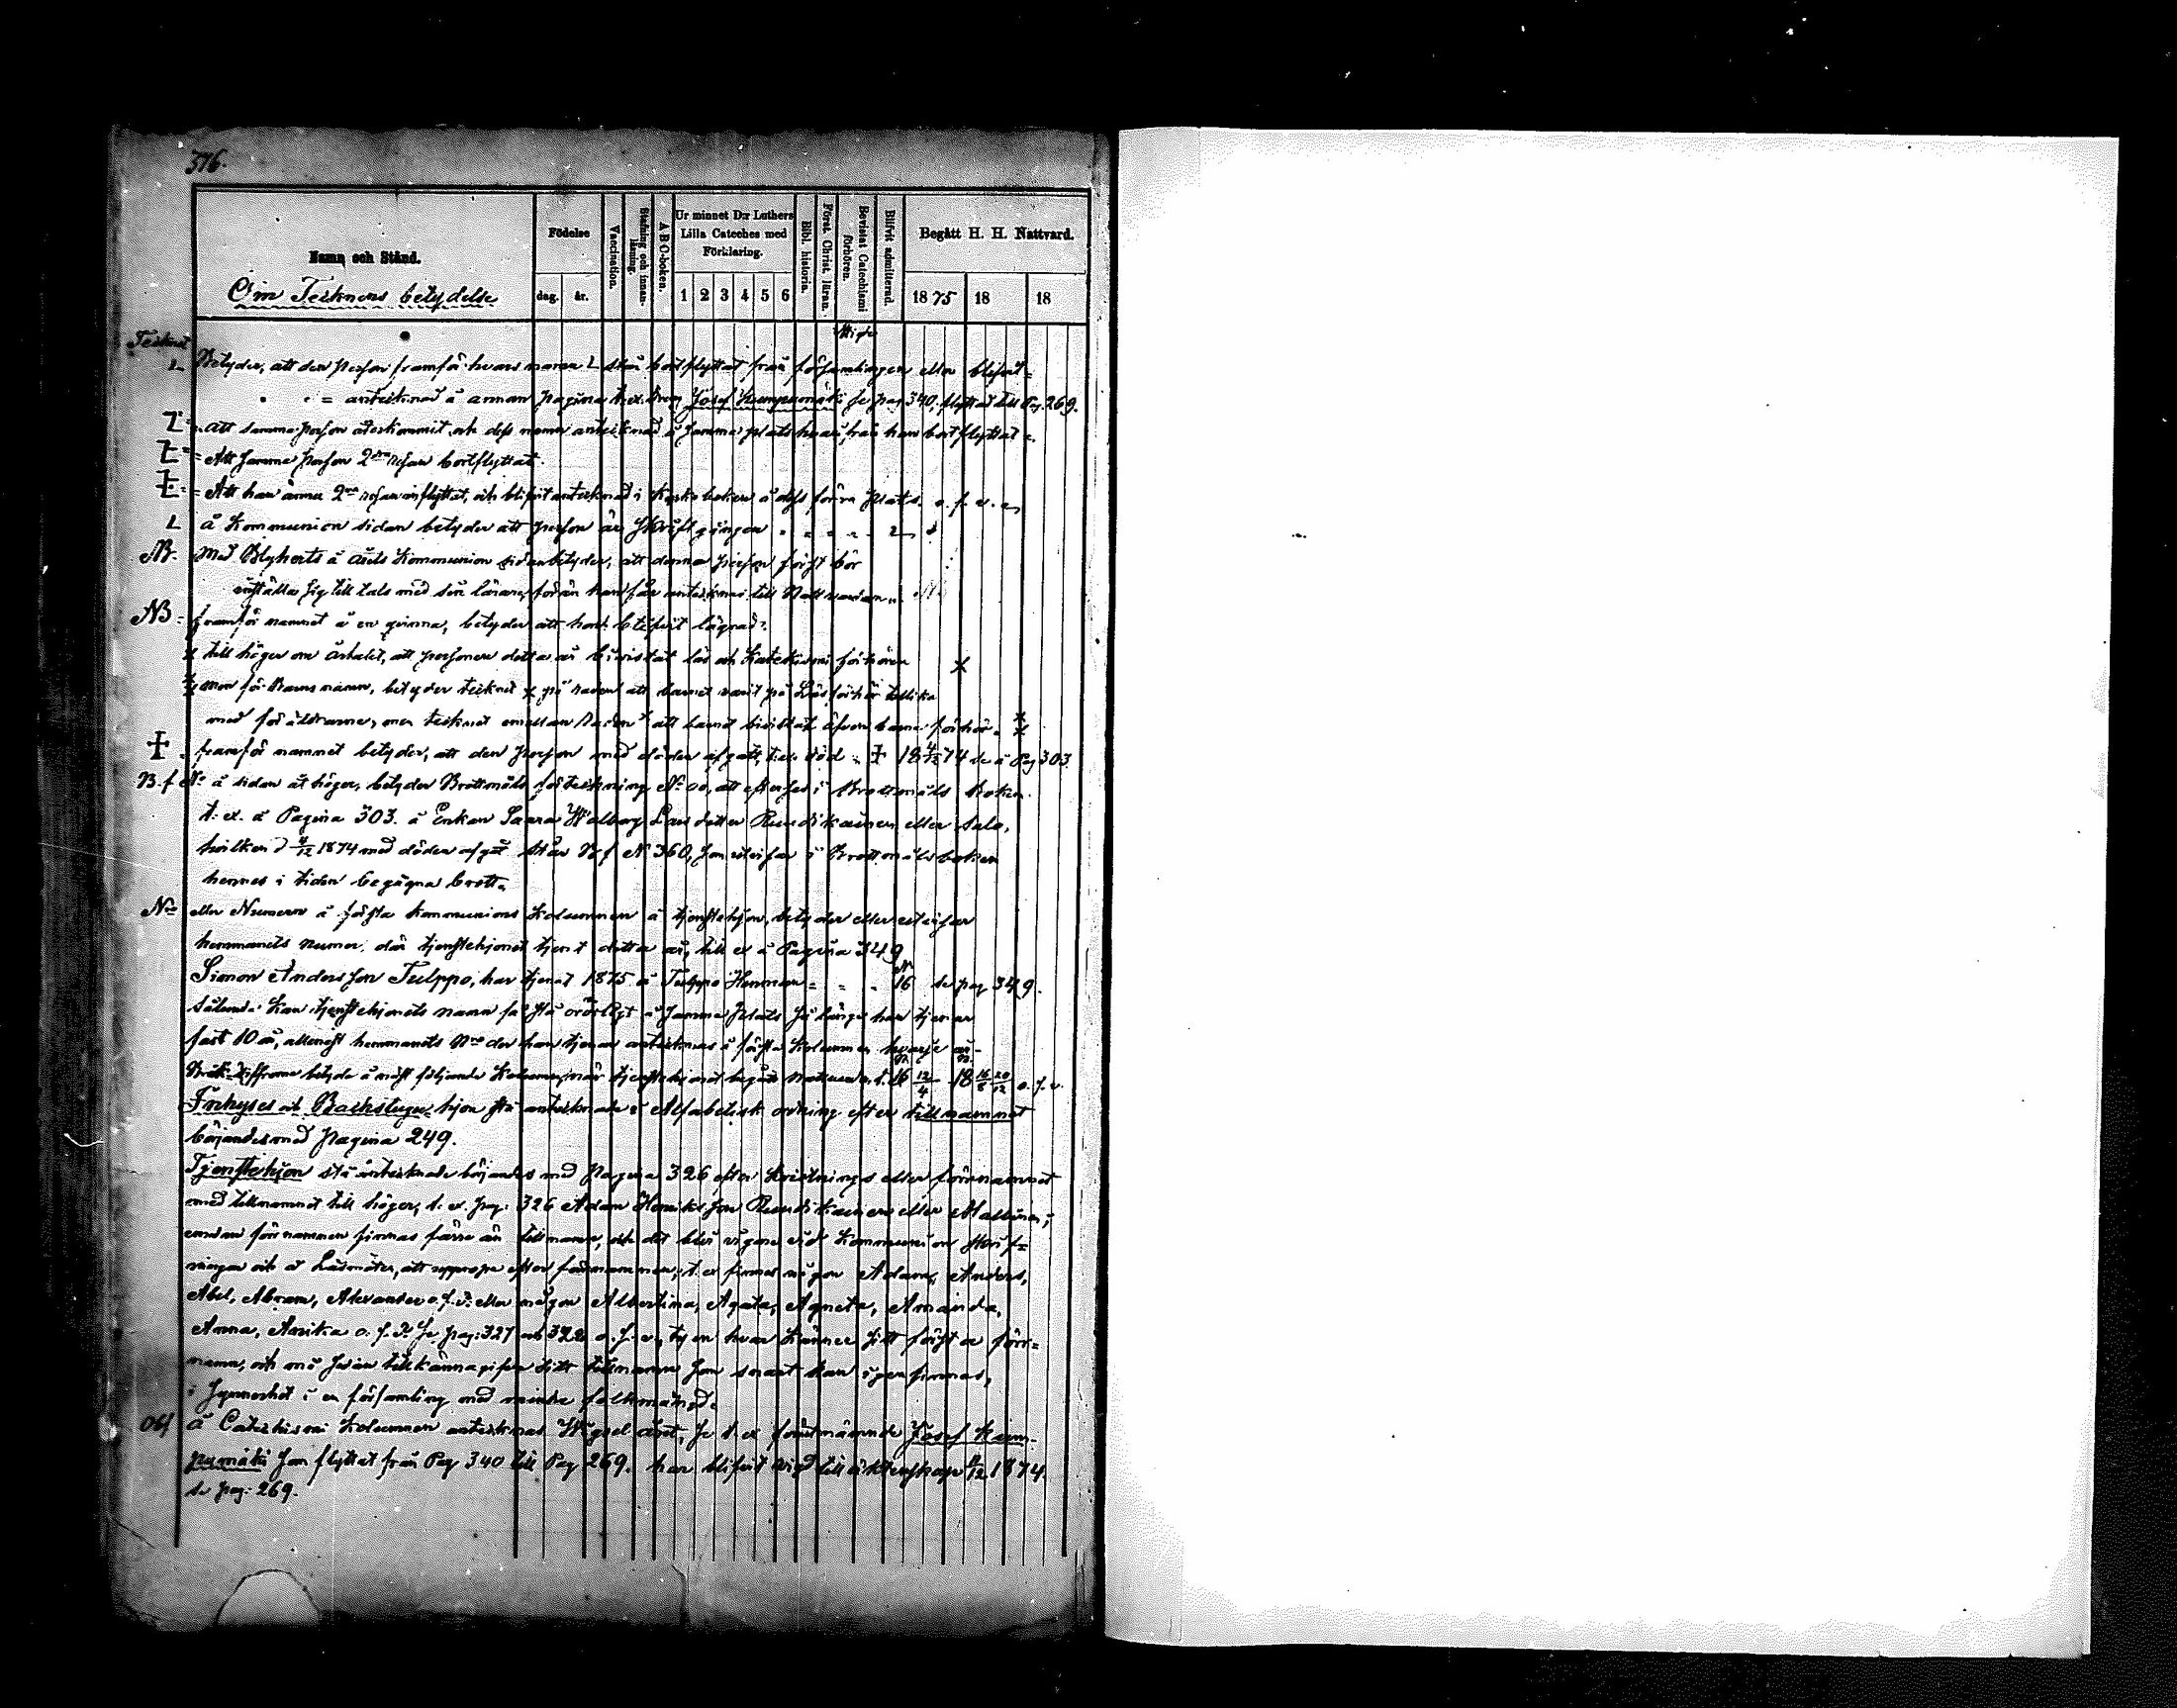 376.
Namn och Stånd.
Om Tecknens betydelse
Födelse
dag. år.
Vaccination.
Stafning och innanläsning.
A B C-boken.
Ur minnet D:r Luthers Lilla Cateches med Förklaring.
1 2 3 4 5 6
Bibl. historia.
Förest. Christ. läran.
Bevistat Catechismi förhören.
Blifvit admitterad.
Begått H. H. Nattvard.
1875 18 18
Tecknet
L Betyder, att den person framför hvars namn L står bortflyttat från församlingen eller blifvit
antecknad å annan pagina t. ex. Josef Kumpumäki se pag 340, flyttad till Pag. 269.
att samma person återkommit och dess namn antecknad å samma plats hvarifrån han bortflyttat
Att samma person 2dra resan bortflyttat.
Att han ännu 2dra resan inflyttat, och blifvit antecknad i Kyrkoboken å dess förra plats. o. s. v.
L å Kommunion sidan betyder att person är skriftgången
NB. med Blyherts å årets Kommunion sidan betyder, att denna person först bör
inställa sig till tals med sin lärare, förän han får antecknas till Nattvarden
NB. framför namnet å en qvinna, betyder att hon blifvit lägrad.
x till höger om årtalet, att personen detta år bivistat läs och Katekismi förhören x
men för Barnsnamn, betyder tecknet x på raden att barnet varit på Läsförhör tillika
med föräldrarne, men tecknet emellan raden x att barnet bivistat äfven barna förhör. x x
‡ framför namnet betyder, att den person med döden afgått, t. ex. död ‡ 18 4/12 74 se å Pag 303.
B. f No å sidan åt höger, betyder Brottmåls förteckning No 00, att efterses i Brottmåls boken
t. ex. å Pagina 303. å Enkan Saara Walborg Larsdotter Rundikainen eller Salo,
hvilken d 4/12 1874 med döden afgått står B f No 360, som utvisar i Brottmålsboken
hennes i tiden begågna brott.
No eller Numern å första Kommunions Kolumnen å tjenstehjon, betyder eller utvisar
hemmanets numer, där tjenstehjonet tjent detta år, till ex å Pagina 349
Simon Andersson Tulppo, har tjenat 1875 å Tulppo Hemman No 16 se pag 349.
således kan tjenstehjonets namn få stå orörligt å samma plats så länge han tjenar
fast 10 år, allenast hemmanets Nro der han tjenar antecknas å första Kolumnen hvarje år
Bråk ziffrorne betyda å näst följande Kolumn, när tjenstehjonet begått nattvarden t. 16 12/4 18 16/8 20/12 o. s. v.
Inhyses och Backstugu hjon stå antecknade i Alfabetisk ordning efter tillnamnet
börjandes med pagina 249.
Tjenstehjon stå antecknade börjandes med Pagina 326 efter Kristnings eller förrnamnet
med tillnamnet till höger, t. ex. pag: 326 Adam Henriksson Rundikainen eller Mallinen;
emedan förrnamnen finnas färre än tillnamn, och det blir vigare vid Kommunion skrif-
ningen och å Läsmöten, att uppropa efter förrnamnen, t. ex finnes någon Adam, Anders,
Abel, Abram, Alexander o. s. v. eller någon Albertina, Agata, Agneta, Amanda,
Anna, Anika o. s. v. Se pag: 327 och 328 o. s. v., ty en hvar känner sitt första förr-
namn, och må sedan tillkännagifva sitt tillnamn som snart kan igenfinnas,
i synnerhet i en församling med mindre folkmängd.
Obs å Catechismi Kolumnen antecknas Wigsel året, se t. ex förutnämnde Josef Kum-
pumäki som flyttat från Pag 340 till Pag 269. har blifvit vigd till äktenskap 4/12 1874.
se pag: 269.